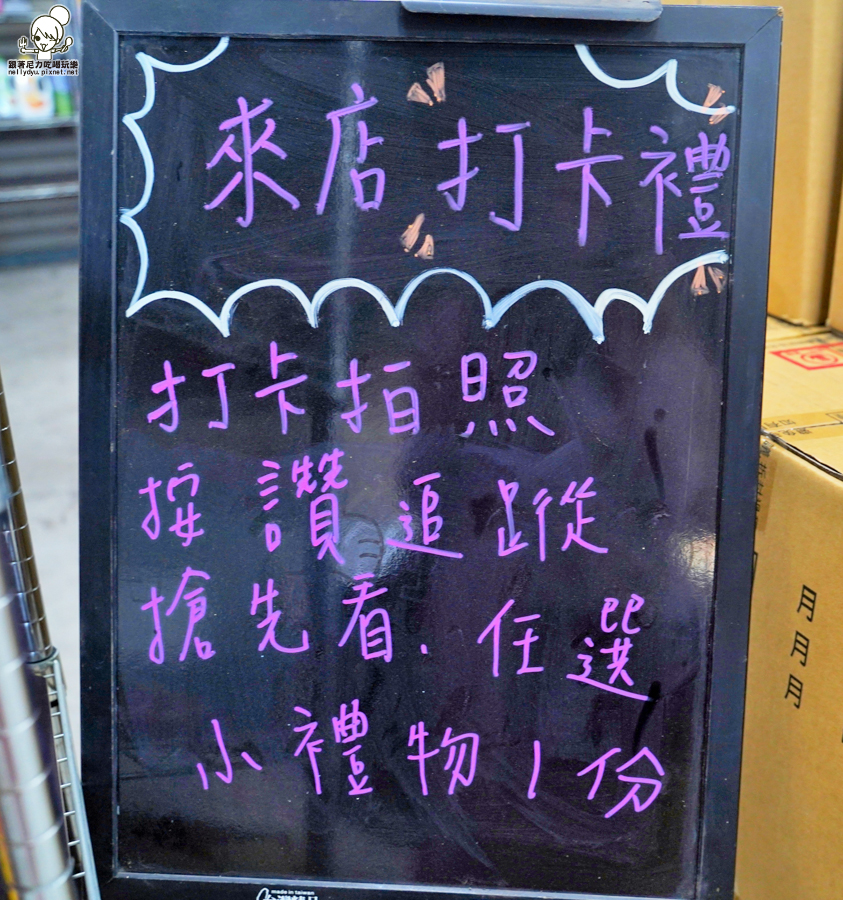 跟著尼力吃喝玩樂
nellydyu.pixnet.net
來店打卡禮
打卡拍照
按讚追蹤
搶先看.任選
小禮物1份
月月月
made in taiwan